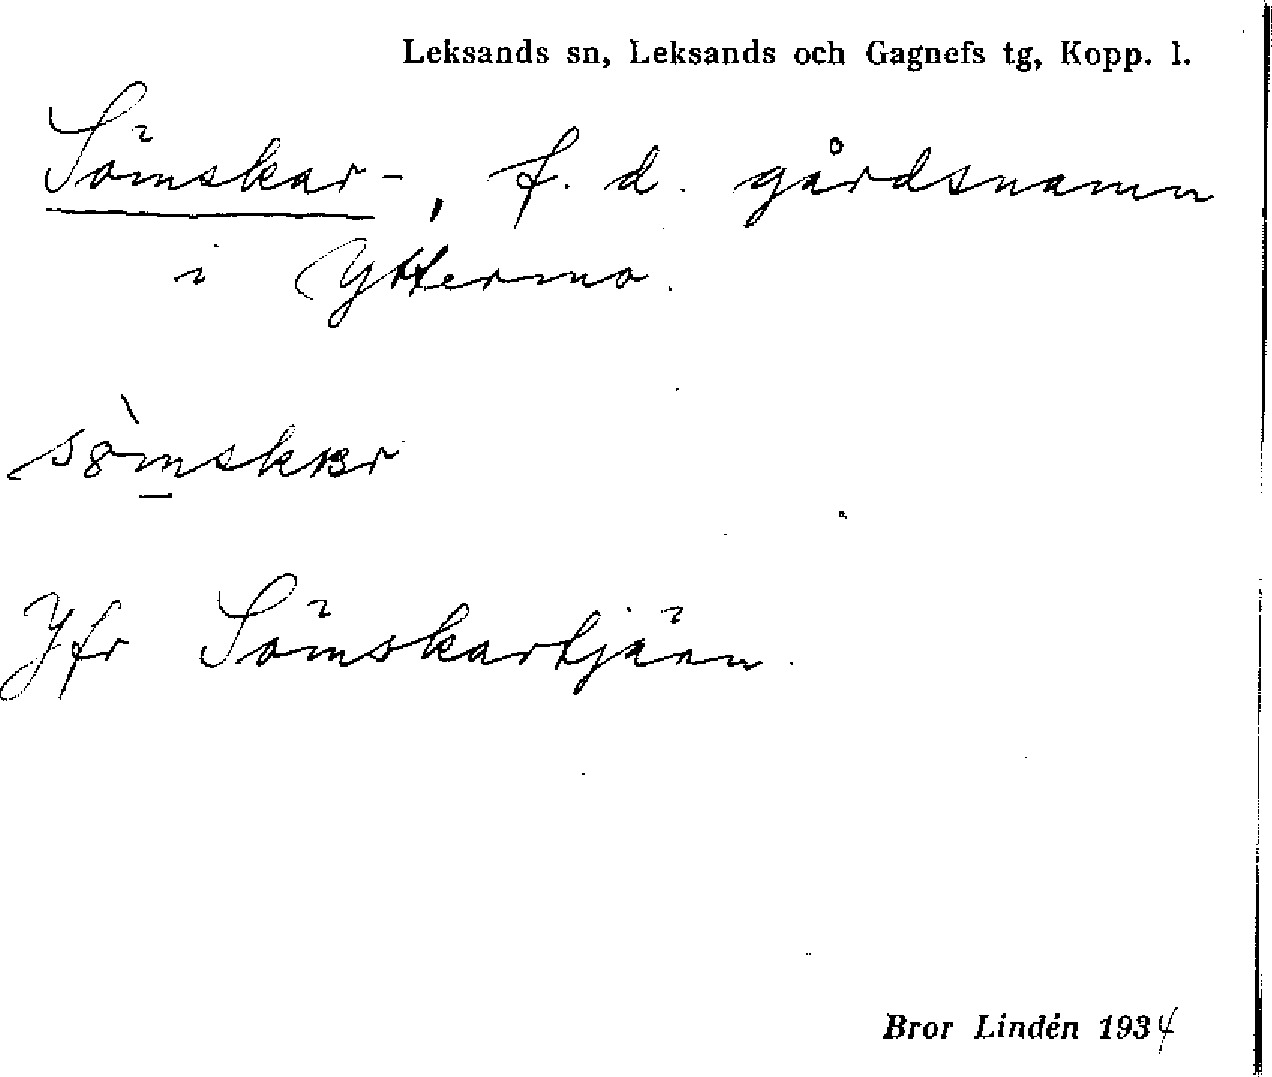 Leksands sn, Leksands och Gagnefs tg, Kopp. l.
Sömskar-, f. d. gårdsnamn
i Yttermo.
Jfr Sömskartjärn.
Bror Lindén 1934